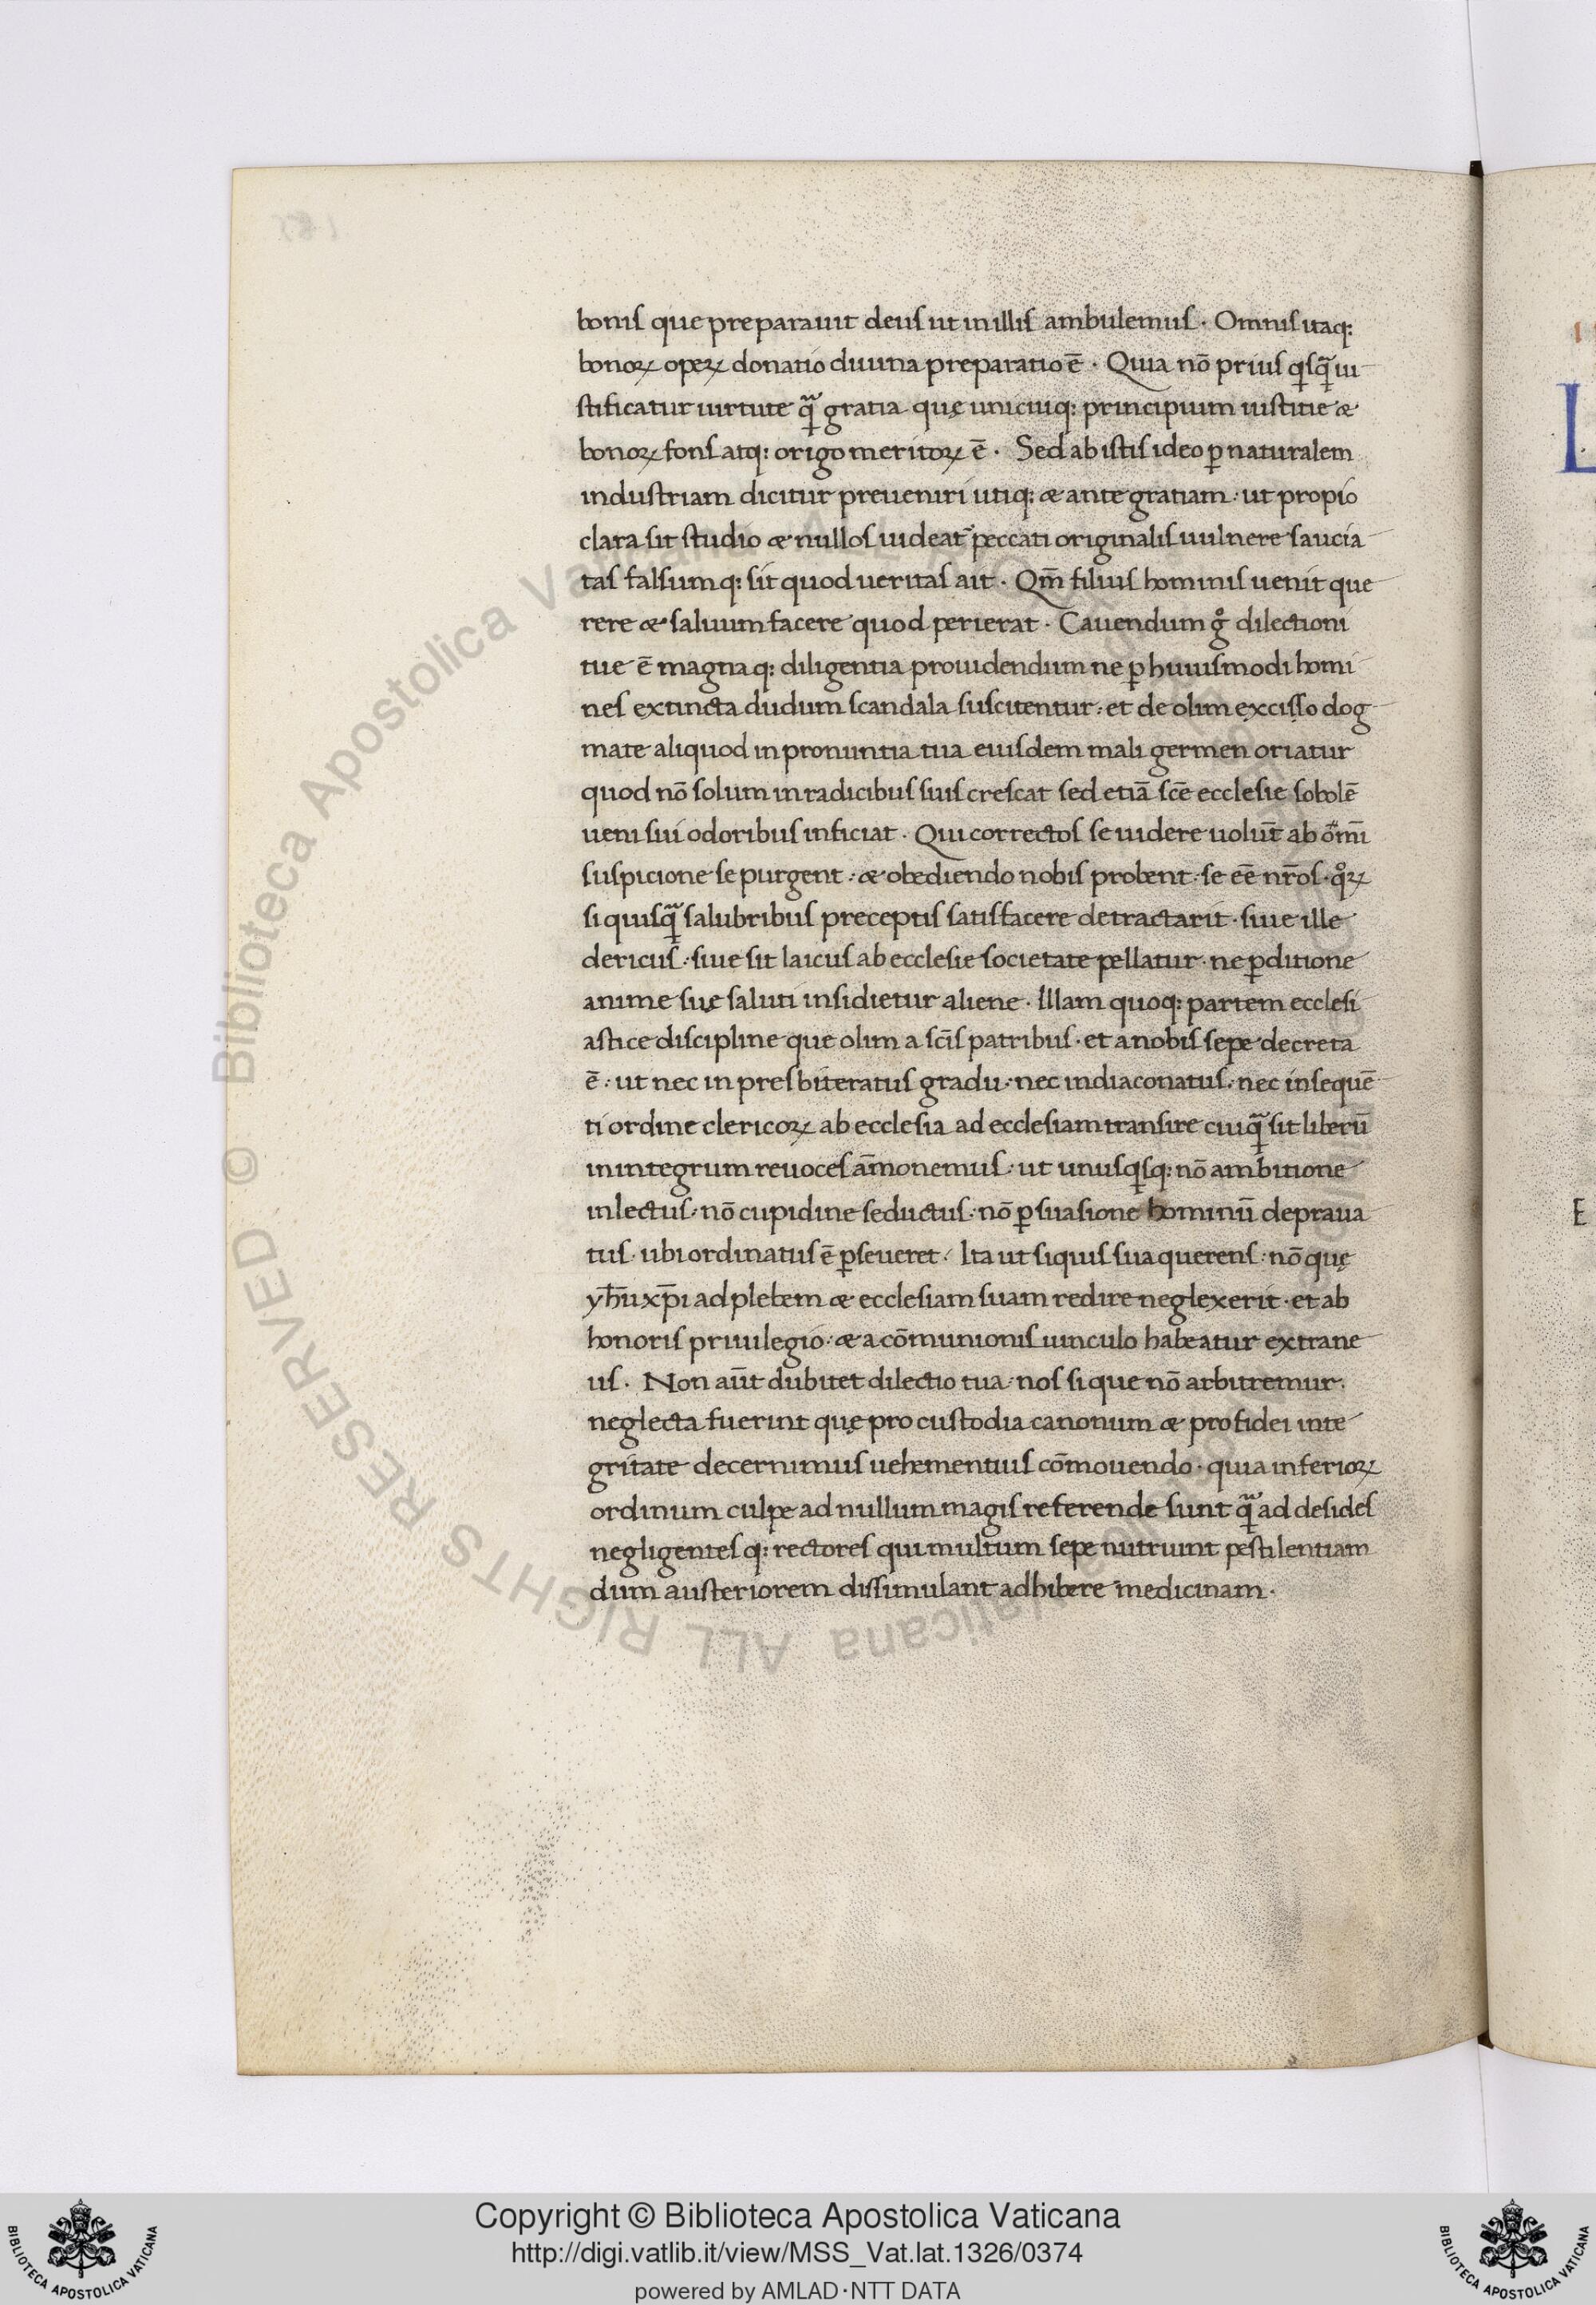 bonis que preparauit deus ut in illis ambulemus · Omnis itaq:
bonoꝝ opeꝝ donatio diuina preparatio ē · Quia nō prius qͥsqᷓ iu
stificatur uirtute qᷓ gratia que̜ unicuiq: principium iustitie &
bonoꝝ fons atq: origo meritoꝝ ē · Sed ab istis ideo ꝑ naturalem
industriam dicitur preueniri utiq: & ante gratiam : ut propio
clara sit studio & nullos uideat᷑ peccati originalis uulnere saucia
tas falsumq: sit quod ueritas ait · Qm̄ filius hominis uenit que
rere & saluum facere quod perierat · Cauendum gͦ dilectioni
tue ē magnaq: diligentia prouidendum ne ꝑ huiusmodi homi
nes extincta dudum scandala suscitentur : et de olim excisso dog
mate aliquod in pronuntia tua eiusdem mali germen oriatur
quod nō solum in radicibus suis crescat sed etiā scē ecclesie sobolē
ueni sui odoribus inficiat · Qui correctos se uidere uolūt ab om̄i
suspicione se purgent : & obediendo nobis probent : se eē nr̄os · qͦꝝ
si quisqᷓ salubribus preceptis satisfacere detractarit · siue ille
clericus : siue sit laicus ab ecclesie societate pellatur · ne ꝑditione
anime sue̜ saluti insidietur aliene · Illam quoq: partem ecclesi
astice discipline que olim a scīs patribus · et a nobis sepe decreta
ē : ut nec in presbiteratus gradu : nec in diaconatus : nec in sequē
ti ordine clericoꝝ ab ecclesia ad ecclesiam transire cuiqᷓ sit liberū
in integrum reuoces am̄onemus : ut unusqͥsq: nō ambitione
inlectus : nō cupidine seductus : nō ꝑsuasione hominū depraua
tus · ubi ordinatus ē ꝑseueret · Ita ut siquis sua querens : nō que̜
yh̄u xp̄i ad plebem & ecclesiam suam redire neglexerit · et ab
honoris priuilegio : & a cōmunionis uinculo habeatur extrane
us · Non aūt dubitet dilectio tua : nos si que nō arbitremur ·
neglecta fuerint que̜ pro custodia canonum & pro fidei inte
gritate decernimus uehementius cōmouendo · quia inferioꝝ
ordinum culpe ad nullum magis referende sunt qᷓ ad desides
negligentesq: rectores qui multum sepe nutriunt pestilentiam
dum austeriorem dissimulant adhibere medicinam ·
L
E
© Biblioteca Apostolica Vaticana ALL RIGHTS RESERVED
Copyright © Biblioteca Apostolica Vaticana
http://digi.vatlib.it/view/MSS_Vat.lat.1326/0374
powered by AMLAD·NTT DATA
BIBLIOTECA APOSTOLICA VATICANA
BIBLIOTECA APOSTOLICA VATICANA